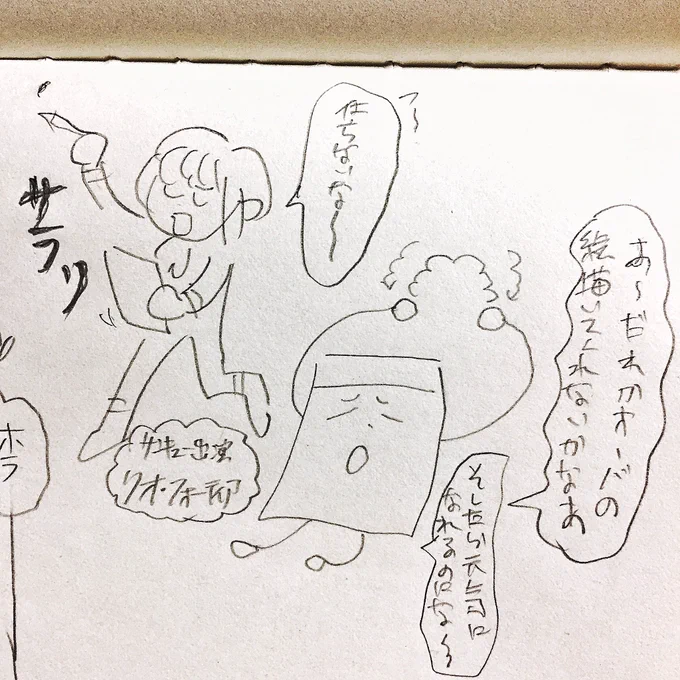 あ〜だれかオーバの
絵描いてくれないかなあ
そしたら元気に
なれるのにな〜
仕方ないな〜
サラリ
サンキュー出演
リオ・フォーデイア
ホラ